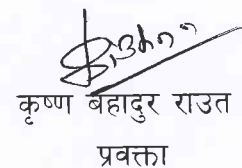 कृष्ण बहादुर राउत
प्रवक्ता